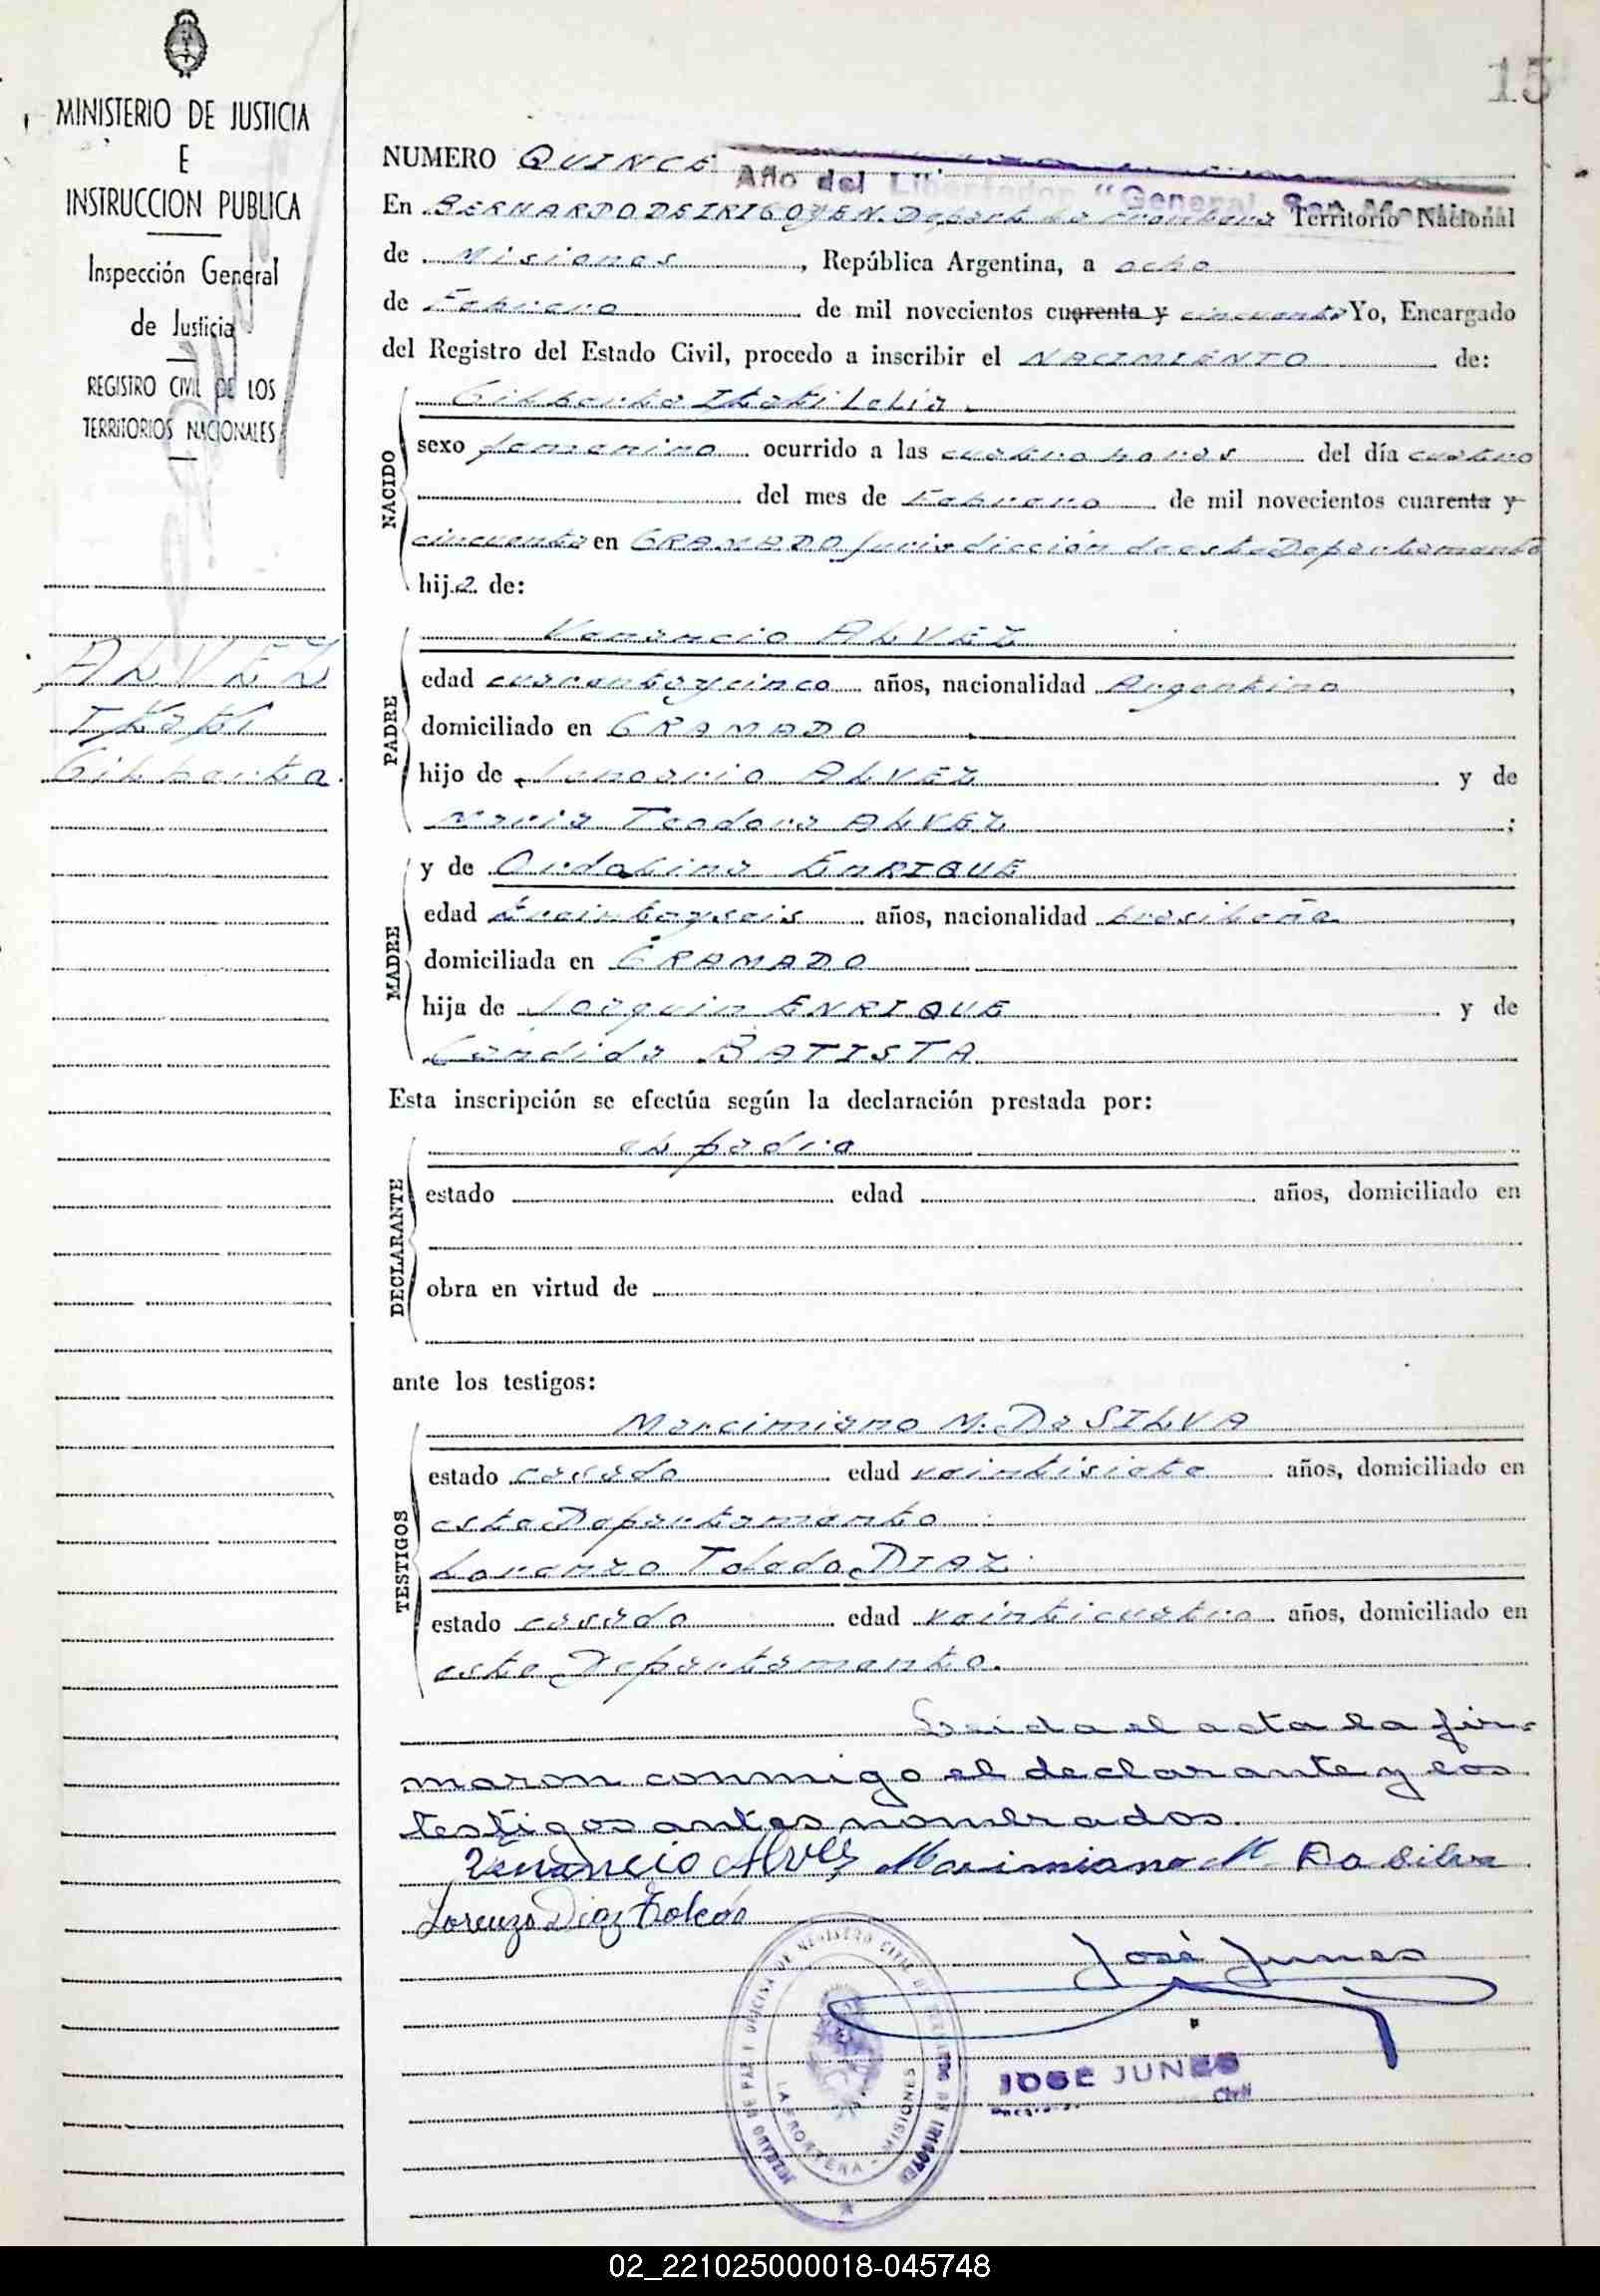 15
MINISTERIO DE JUSTICIA
E
INSTRUCCION PUBLICA
Inspección General
de Justicia
REGISTRO CIVIL DE LOS
TERRITORIOS NACIONALES
ALVEZ
Itati
Gilberta
NUMERO QUINCE
Año del Libertador "General San Martín"
En BERNARDO DE IRIGOYEN. Depart. de Frontera Territorio Nacional
de Misiones, República Argentina, a ocho
de Febrero de mil novecientos cuarenta y cincuenta Yo, Encargado
del Registro del Estado Civil, procedo a inscribir el NACIMIENTO de:
NACIDO
Gilberta Itati Lelia
sexo femenino ocurrido a las cuatro horas del día cuatro
del mes de Febrero de mil novecientos cuarenta y
cincuenta en GRAMADO Jurisdicción de este Departamento
hija de:
PADRE
Venancio ALVEZ
edad cuarenta y cinco años, nacionalidad Argentino,
domiciliado en GRAMADO
hijo de Januario ALVEZ y de
Maria Teodora ALVEZ;
MADRE
y de Ordalina ENRIQUE
edad treinta y seis años, nacionalidad brasileña,
domiciliada en GRAMADO
hija de Joaquin ENRIQUE y de
Candida BATISTA
Esta inscripción se efectúa según la declaración prestada por:
DECLARANTE
el padre
estado edad años, domiciliado en
obra en virtud de
ante los testigos:
TESTIGOS
Marcimiano M. Da SILVA
estado casado edad veintisiete años, domiciliado en
este Departamento
Lorenzo Toledo DIAZ
estado casado edad veinticuatro años, domiciliado en
este Departamento.
Leida el acta la fir-
maron conmigo el declarante y los
testigos antes nombrados.
Venancio Alves Marcimiano M Da Silva
Lorenzo Diaz Toledo
José Junes
JOSE JUNES
Civil
JUZGADO DE PAZ Y OFICINA DE REGISTRO CIVIL DE BERNARDO DE IRIGOYEN
LA FRONTERA - MISIONES
02_221025000018-045748